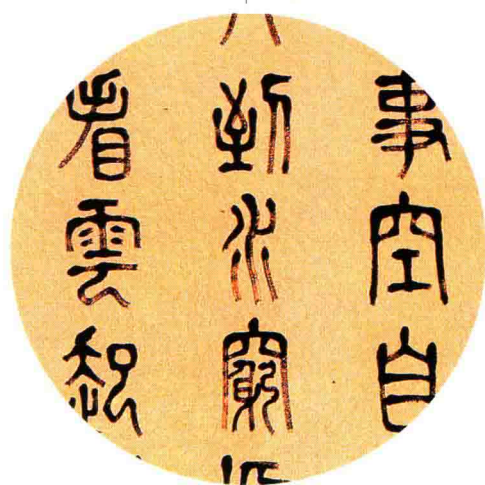 事空自
到水窮
看雲起